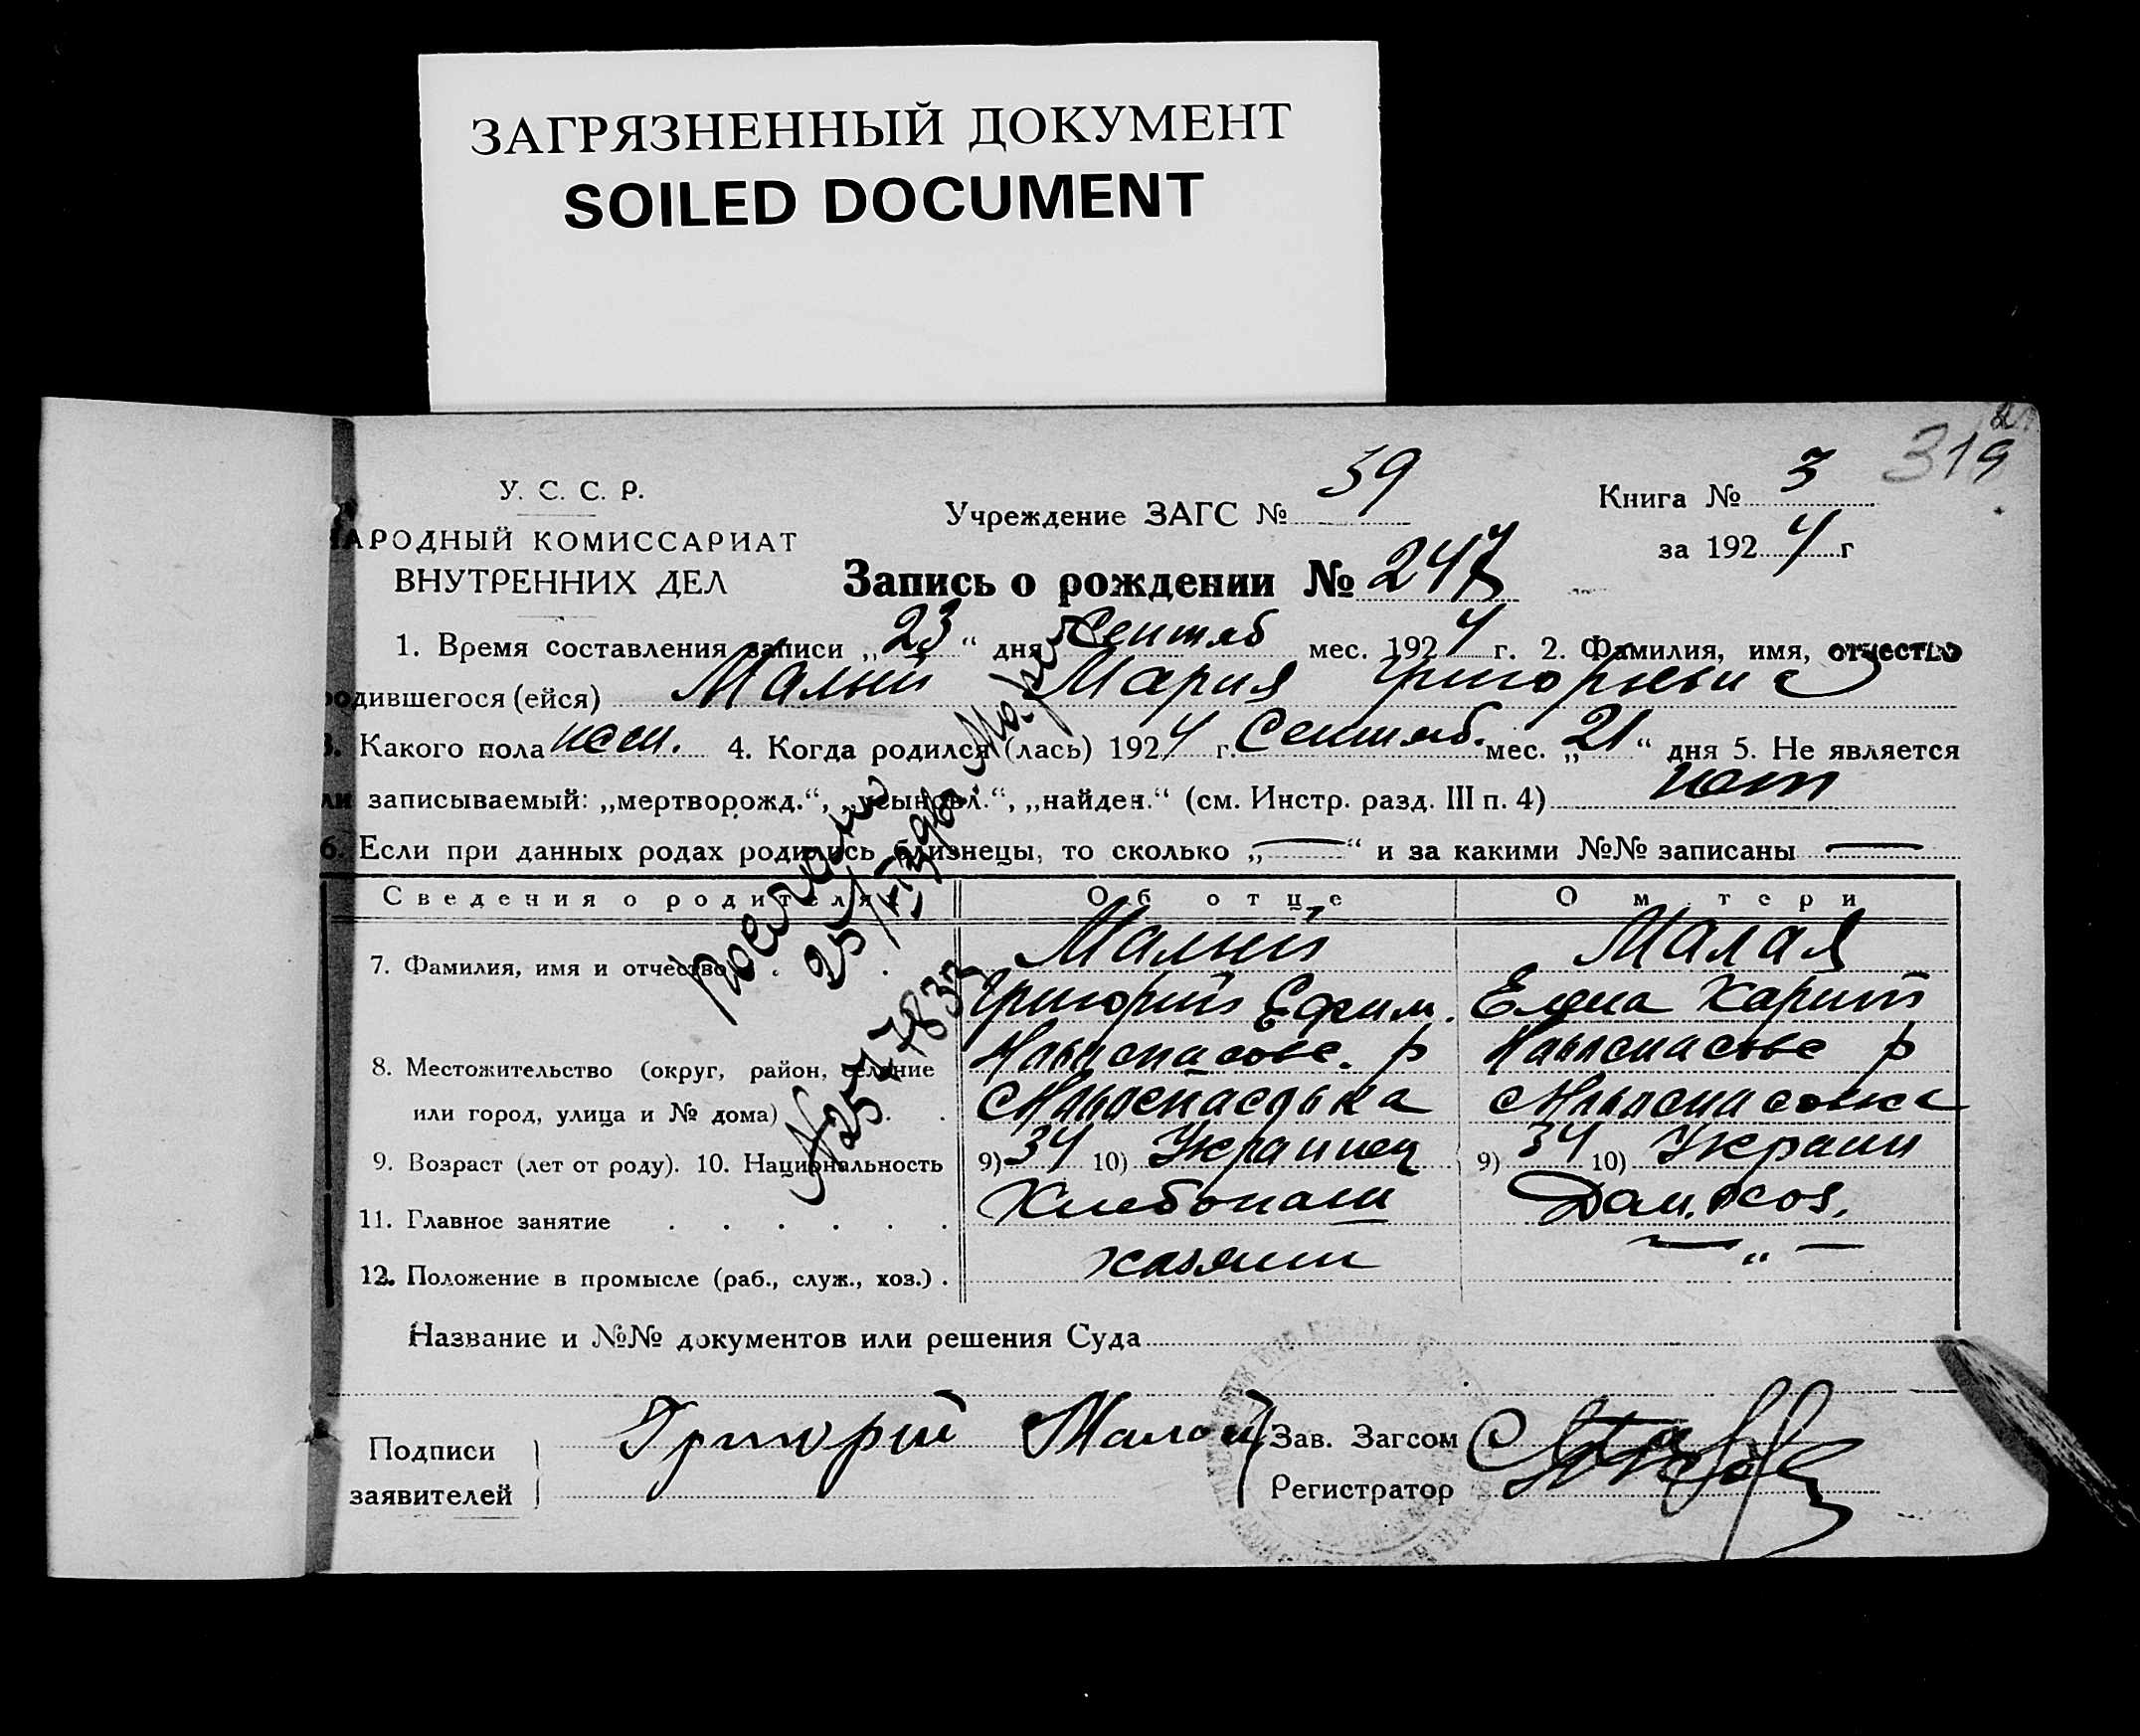 ЗАГРЯЗНЕННЫЙ ДОКУМЕНТ
SOILED DOCUMENT
319
У. С. С. Р.
АРОДНЫЙ КОМИССАРИАТ
ВНУТРЕННИХ ДЕЛ
Учреждение ЗАГС № 59
Книга № 3
за 1924 г
Запись о рождении № 247
1. Время составления записи „23“ дня Сентяб мес. 1924 г. 2. Фамилия, имя, отчество
родившегося (ейся) Малый Мария Григорьевн
3. Какого пола жен. 4. Когда родился (лась) 1924 г. Сентяб. мес. „21“ дня 5. Не является
ли записываемый: „мертворожд.“, „усыновл.“, „найден.“ (см. Инстр. разд. III п. 4) нет
6. Если при данных родах родились близнецы, то сколько „—“ и за какими №№ записаны —
Сведения о родителях Об отце О матери
7. Фамилия, имя и отчество Малый Малая
Григорий Ефим. Елена Харит
8. Местожительство (округ, район, селение Новоспасовс. р Новоспасовс р
или город, улица и № дома) с Новоспасовка с Новоспасовка
9. Возраст (лет от роду). 10. Национальность 9) 34 10) Украинец 9) 34 10) Украин
11. Главное занятие Хлебопаш Дом. хоз.
12. Положение в промысле (раб., служ., хоз.) . хозяин — „ —
Название и №№ документов или решения Суда
Подписи заявителей Григорий Малой
Зав. Загсом
Регистратор